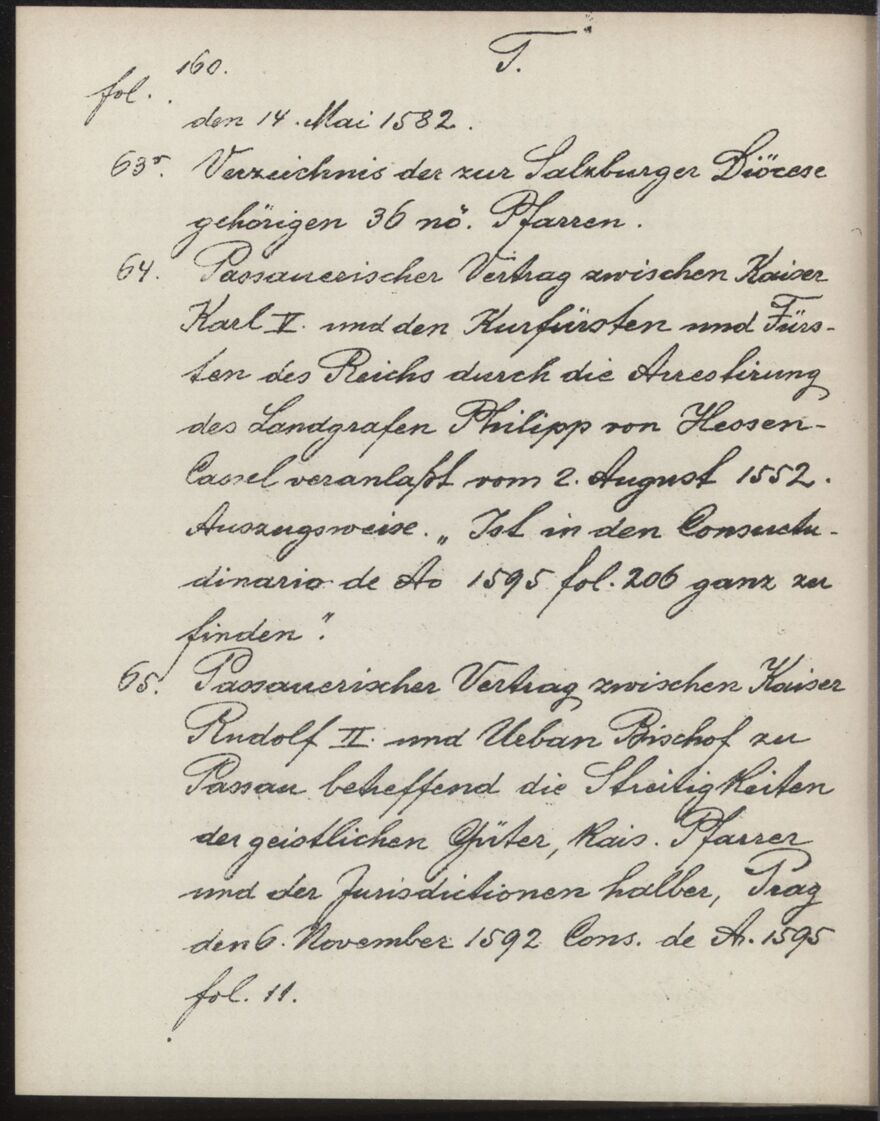 160. T.
fol.
den 14. Mai 1582.
63r. Verzeichnis der zur Salzburger Diöcese
gehörigen 36 nö. Pfarren.
64. Passauerischer Vertrag zwischen Kaiser
Karl V. und den Kurfürsten und Fürs-
ten des Reichs durch die Arrestirung
des Landgrafen Philipp von Hessen-
Cassel veranlaßt vom 2. August 1552.
Auszugsweise. „Ist in den Consuetu-
dinario de Ao 1595 fol. 206 ganz zu
finden".
65. Passauerischer Vertrag zwischen Kaiser
Rudolf II. und Urban Bischof zu
Passau betreffend die Streitigkeiten
der geistlichen Güter, kais. Pfarrer
und der Jurisdictionen halber, Prag
den 6. November 1592 Cons. de A. 1595
fol. 11.